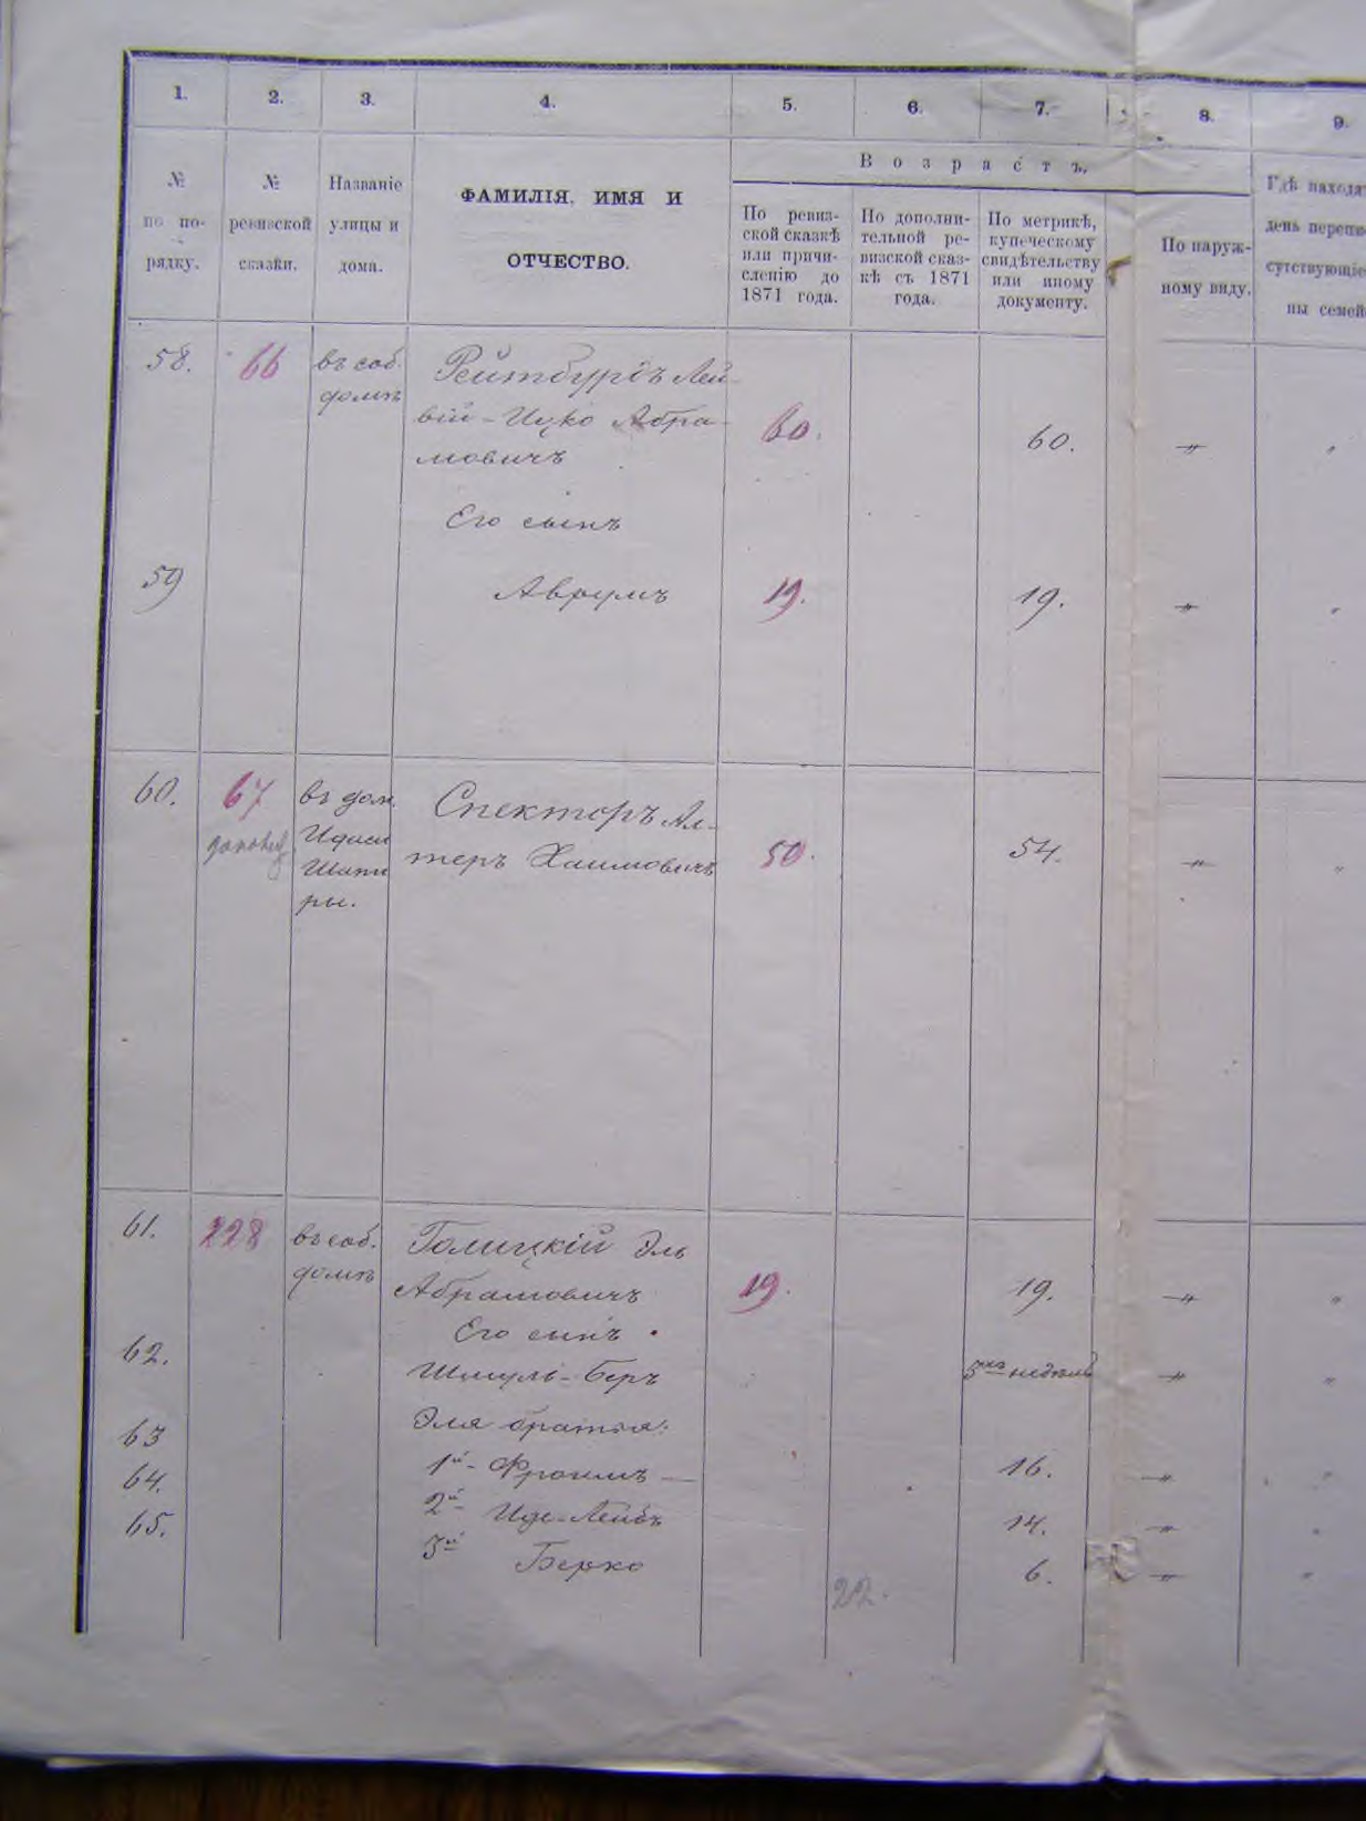 1. 2. 3. 4. 5. 6. 7. 8. 9.
В о з р а с т ъ.
№ по по-рядку.
№ ревизской сказки.
Названіе улицы и дома.
ФАМИЛІЯ, ИМЯ И
ОТЧЕСТВО.
По ревиз-
ской сказкѣ
или причи-
сленію до
1871 года.
По дополни-
тельной ре-
визской сказ-
кѣ съ 1871
года.
По метрикѣ,
купеческому
свидѣтельству
или иному
документу.
По наруж-
ному виду.
Гдѣ находя
день перепи
сутствующіе
ны семей
58. 66 въ соб.
домѣ
Рейтбурдъ Лей-
вій-Ицко Абра-
мовичъ
60. 60. "
Его сынъ
59 Аврумъ 19. 19. "
60. 67 въ дом.
Шапи
ры.
Спекторъ Ал-
теръ Хаимовичъ
50. 54. "
61. 228 въ соб.
домѣ
Голицкій Эль
Абрамовичъ
19. 19. "
Его сынъ
62. Шмуль-Беръ 3хъ недѣль "
Эля братья:
63 1й- Фроимъ — 16. "
64. 2й Иде-Лейбъ 14. "
65. 3й Берко 6. "
22.